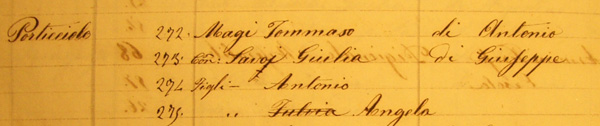 Porticciolo 272. Magi Tommaso di Antonio
273. Con: Savoj Giulia di Giuseppe
274. Figli - Antonio
275. " Fulvia Angela